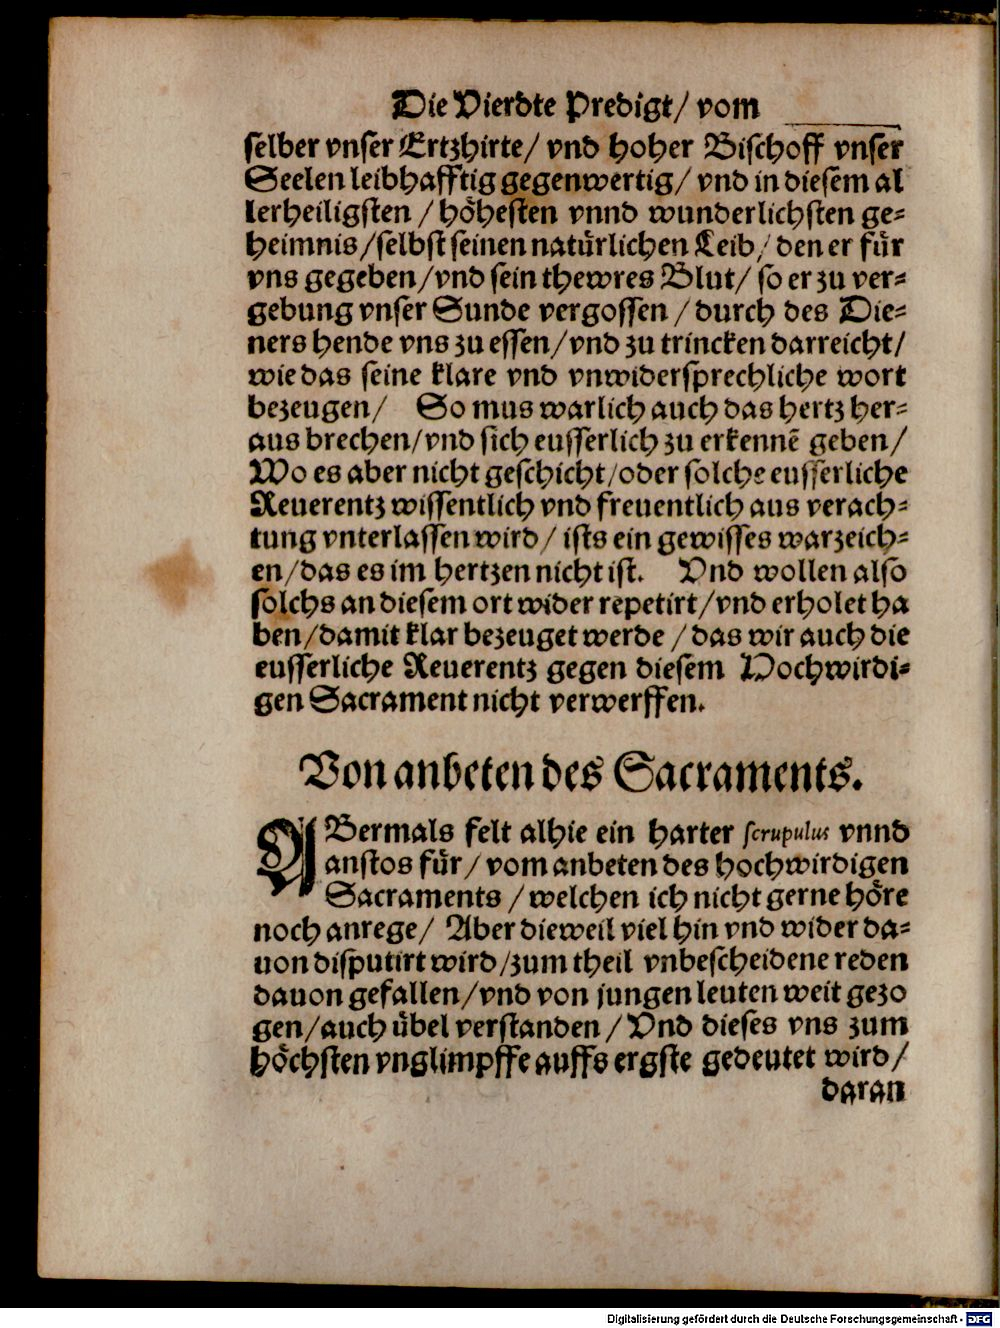 Die Vierdte Predigt/ vom
selber vnser Ertzhirte/ vnd hoher Bischoff vnser
Seelen leibhafftig gegenwertig/ vnd in diesem al
lerheiligsten / höhesten vnnd wunderlichsten ge-
heimnis/selbst seinen natürlichen Leib/ den er für
vns gegeben/vnd sein thewres Blut/ so er zu ver-
gebung vnser Sunde vergossen / durch des Die-
ners hende vns zu essen/vnd zu trincken darreicht/
wie das seine klare vnd vnwidersprechliche wort
bezeugen/ So mus warlich auch das hertz her-
aus brechen/vnd sich eusserlich zu erkennē geben/
Wo es aber nicht geschicht/oder solche eusserliche
Reuerentz wissentlich vnd freuentlich aus verach-
tung vnterlassen wird/ ists ein gewisses warzeich-
en/das es im hertzen nicht ist. Vnd wollen also
solchs an diesem ort wider repetirt/vnd erholet ha
ben/damit klar bezeuget werde /das wir auch die
eusserliche Reuerentz gegen diesem Hochwirdi-
gen Sacrament nicht verwerffen.
Von anbeten des Sacraments.
ABermals felt alhie ein harter scrupulus vnnd
anstos für/ vom anbeten des hochwirdigen
Sacraments / welchen ich nicht gerne höre
noch anrege/ Aber dieweil viel hin vnd wider da-
uon disputirt wird/zum theil vnbescheidene reden
dauon gefallen/vnd von jungen leuten weit gezo
gen/auch übel verstanden / Vnd dieses vns zum
höchsten vnglimpffe auffs ergste gedeutet wird/
daran
Digitalisierung gefördert durch die Deutsche Forschungsgemeinschaft - DFG